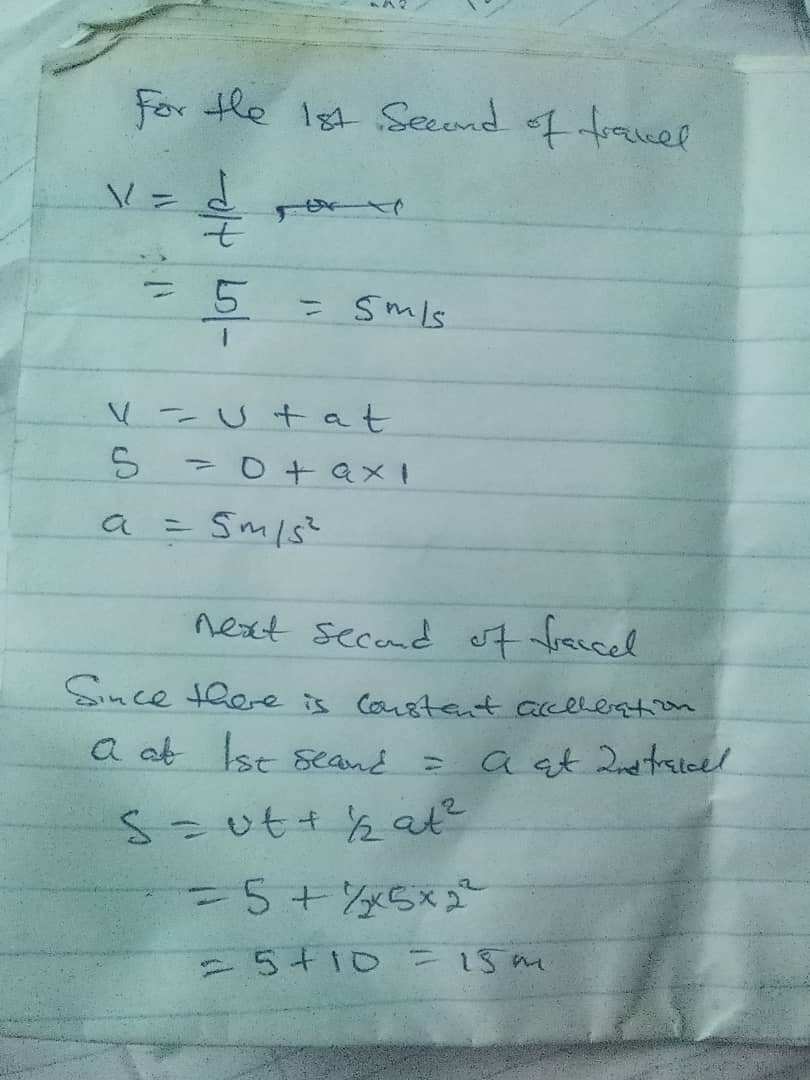 For the 1st Second of travel
V = d/t
∴ = 5/1 = 5m/s
V = U + at
5 = 0 + a×1
a = 5m/s²
next second of travel
Since there is constant acceleration
a at 1st second = a at 2nd travel
S = ut + ½ at²
= 5 + ½×5×2²
= 5 + 10 = 15m